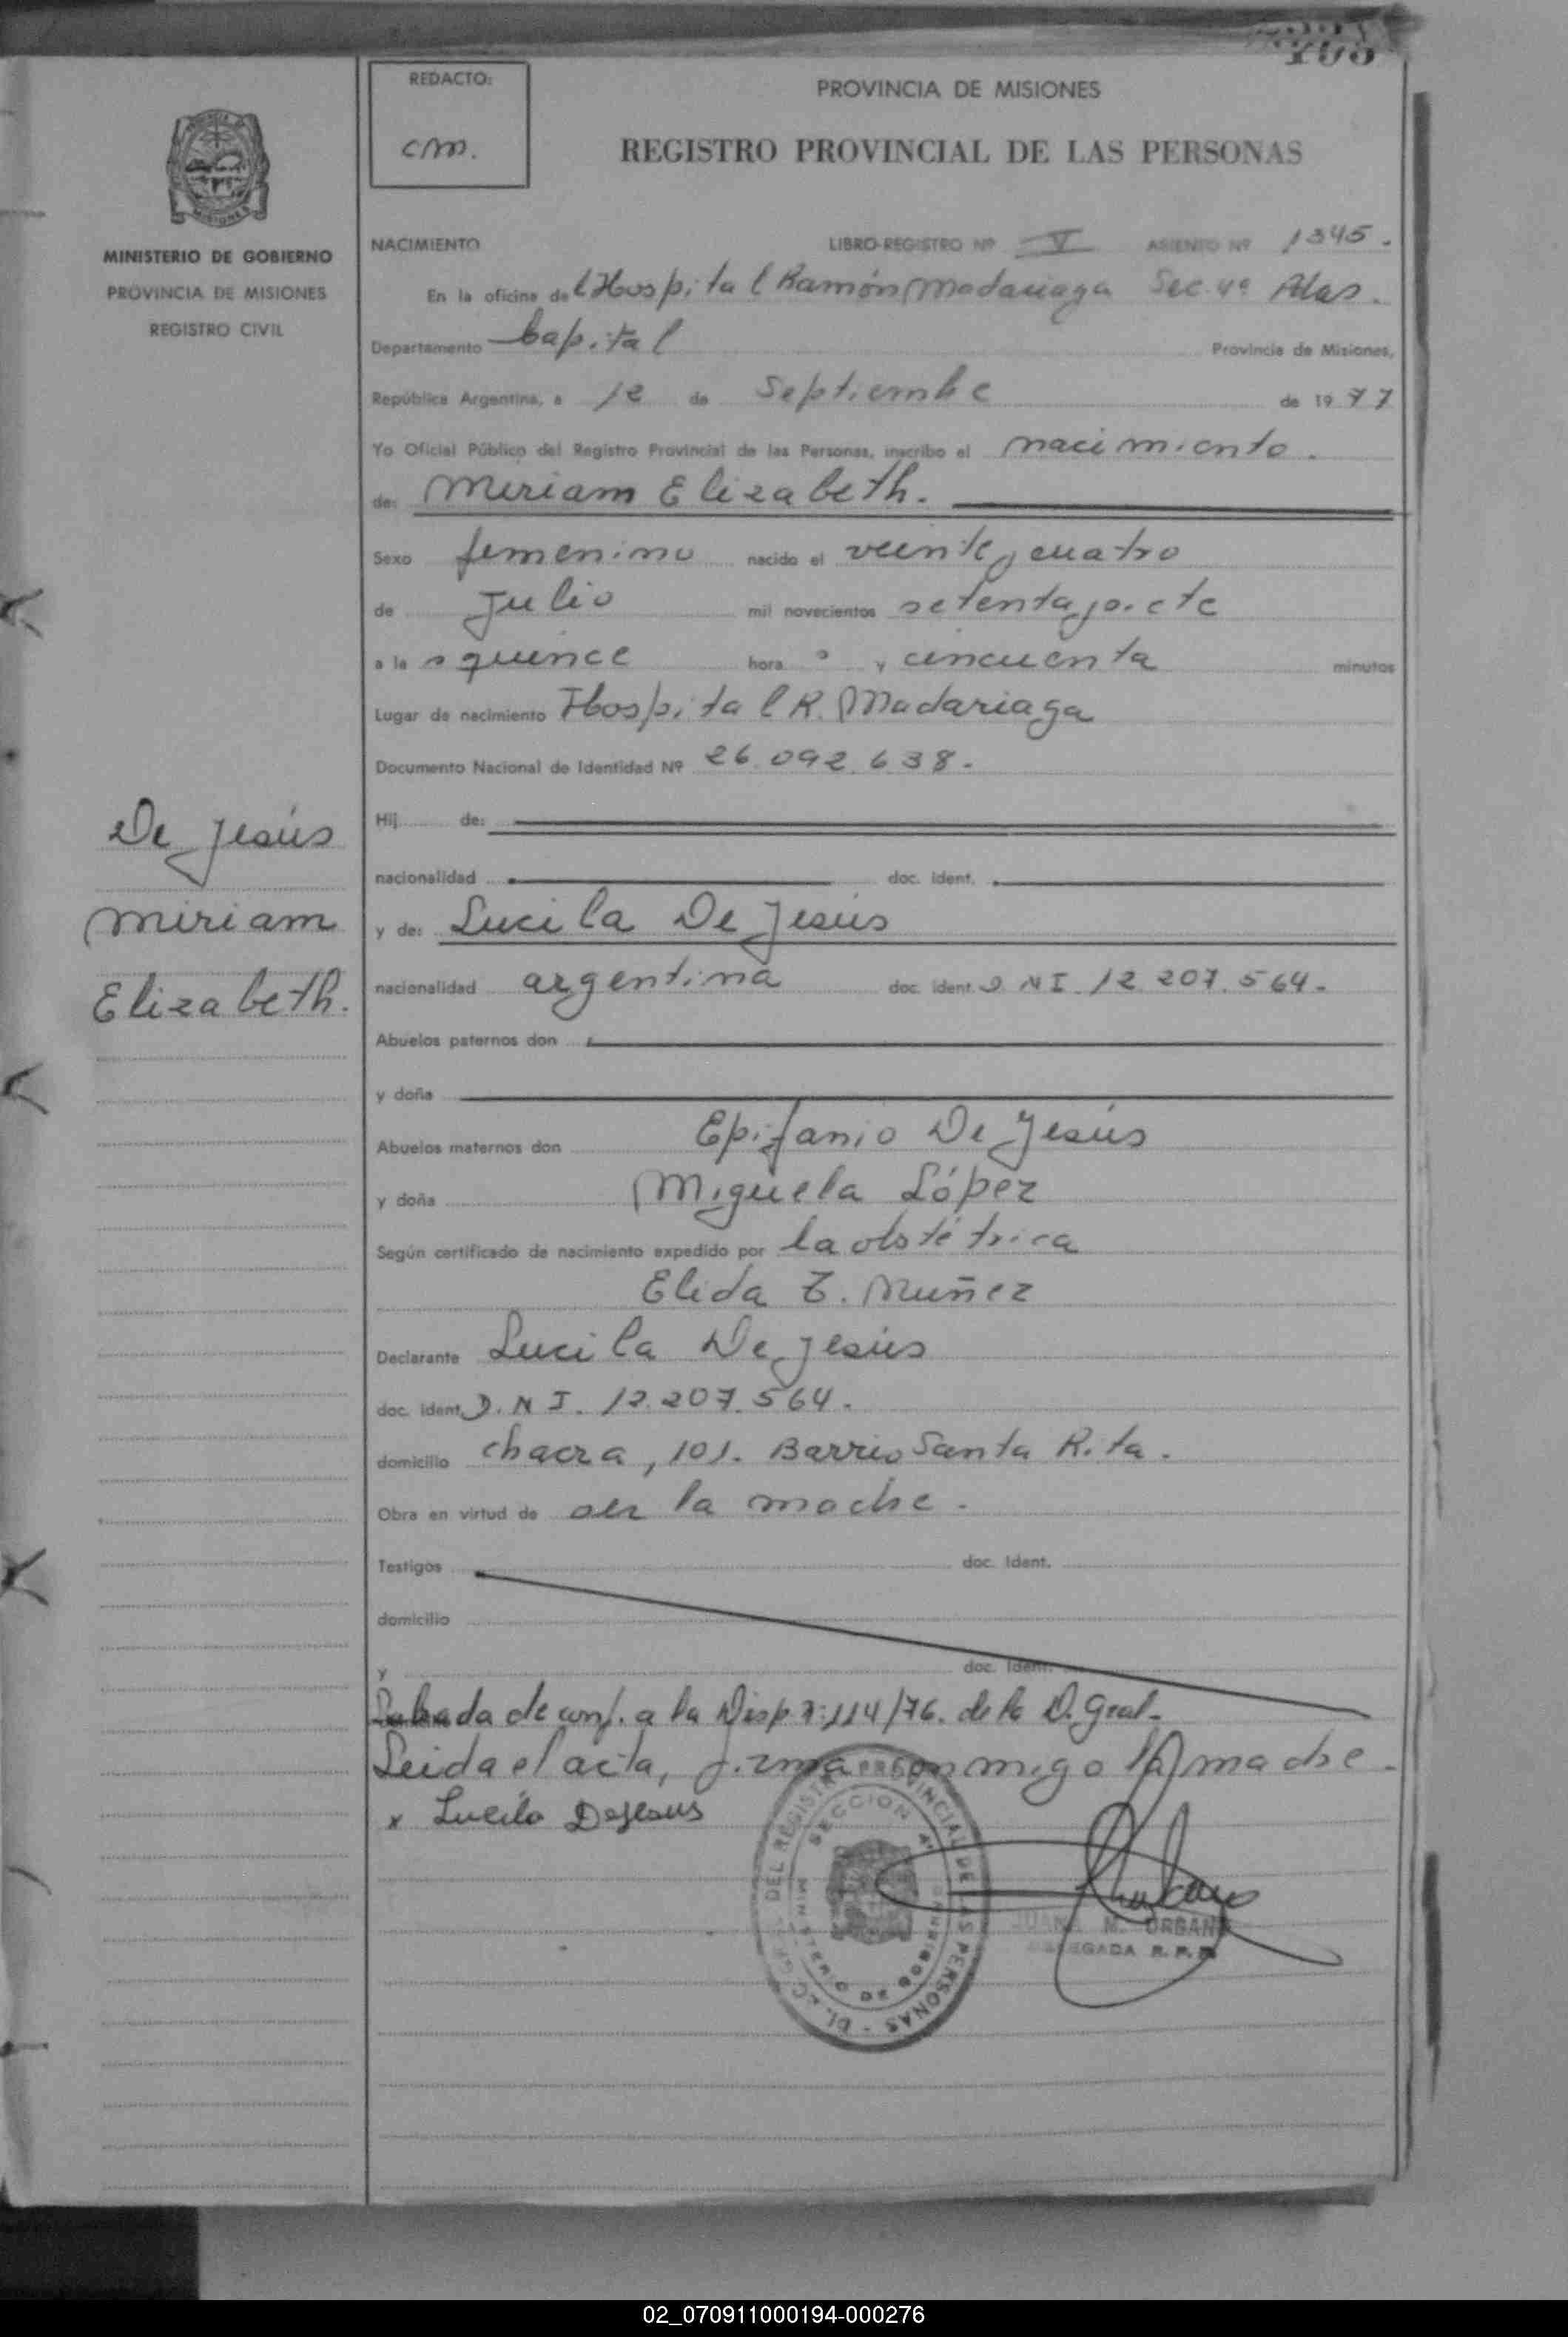 REDACTO:
cm.
PROVINCIA DE MISIONES
REGISTRO PROVINCIAL DE LAS PERSONAS
MINISTERIO DE GOBIERNO
PROVINCIA DE MISIONES
REGISTRO CIVIL
NACIMIENTO LIBRO-REGISTRO Nº V ASIENTO Nº 1345.
En la oficina del Hospital Ramón Madariaga Sec. 4ª Pdas.
Departamento Capital Provincia de Misiones,
República Argentina, a 12 de Septiembre de 1977
Yo Oficial Público del Registro Provincial de las Personas, inscribo el nacimiento.
de: Miriam Elizabeth.
Sexo femenino nacido el veinte y cuatro
de Julio mil novecientos setenta y siete
a las quince horas y cincuenta minutos
Lugar de nacimiento Hospital R. Madariaga
Documento Nacional de Identidad Nº 26.092.638.
Hij de:
nacionalidad doc. ident.
y de: Lucila De Jesús
nacionalidad argentina doc. ident. D.N.I. 12.207.564.
Abuelos paternos don
y doña
Abuelos maternos don Epifanio De Jesús
y doña Miguela López
Según certificado de nacimiento expedido por la obstétrica
Elida Muñez
Declarante Lucila De Jesús
doc. ident. D.N.I. 12.207.564.
domicilio chacra, 101. Barrio Santa Rita.
Obra en virtud de ser la madre.
Testigos doc. Ident.
domicilio
y doc. Ident.
de conf. a la Disp. 114/76. de la D. Gral.
Leida el acta, firma conmigo la madre.
x Lucila Dejesus
De Jesús
Miriam
Elizabeth.
DEL REGISTRO PROVINCIAL DE LAS PERSONAS
SECCION 4ª
MINISTERIO DE GOBIERNO
JUANA M. URBANO
DELEGADA R.P.P.
02_070911000194-000276